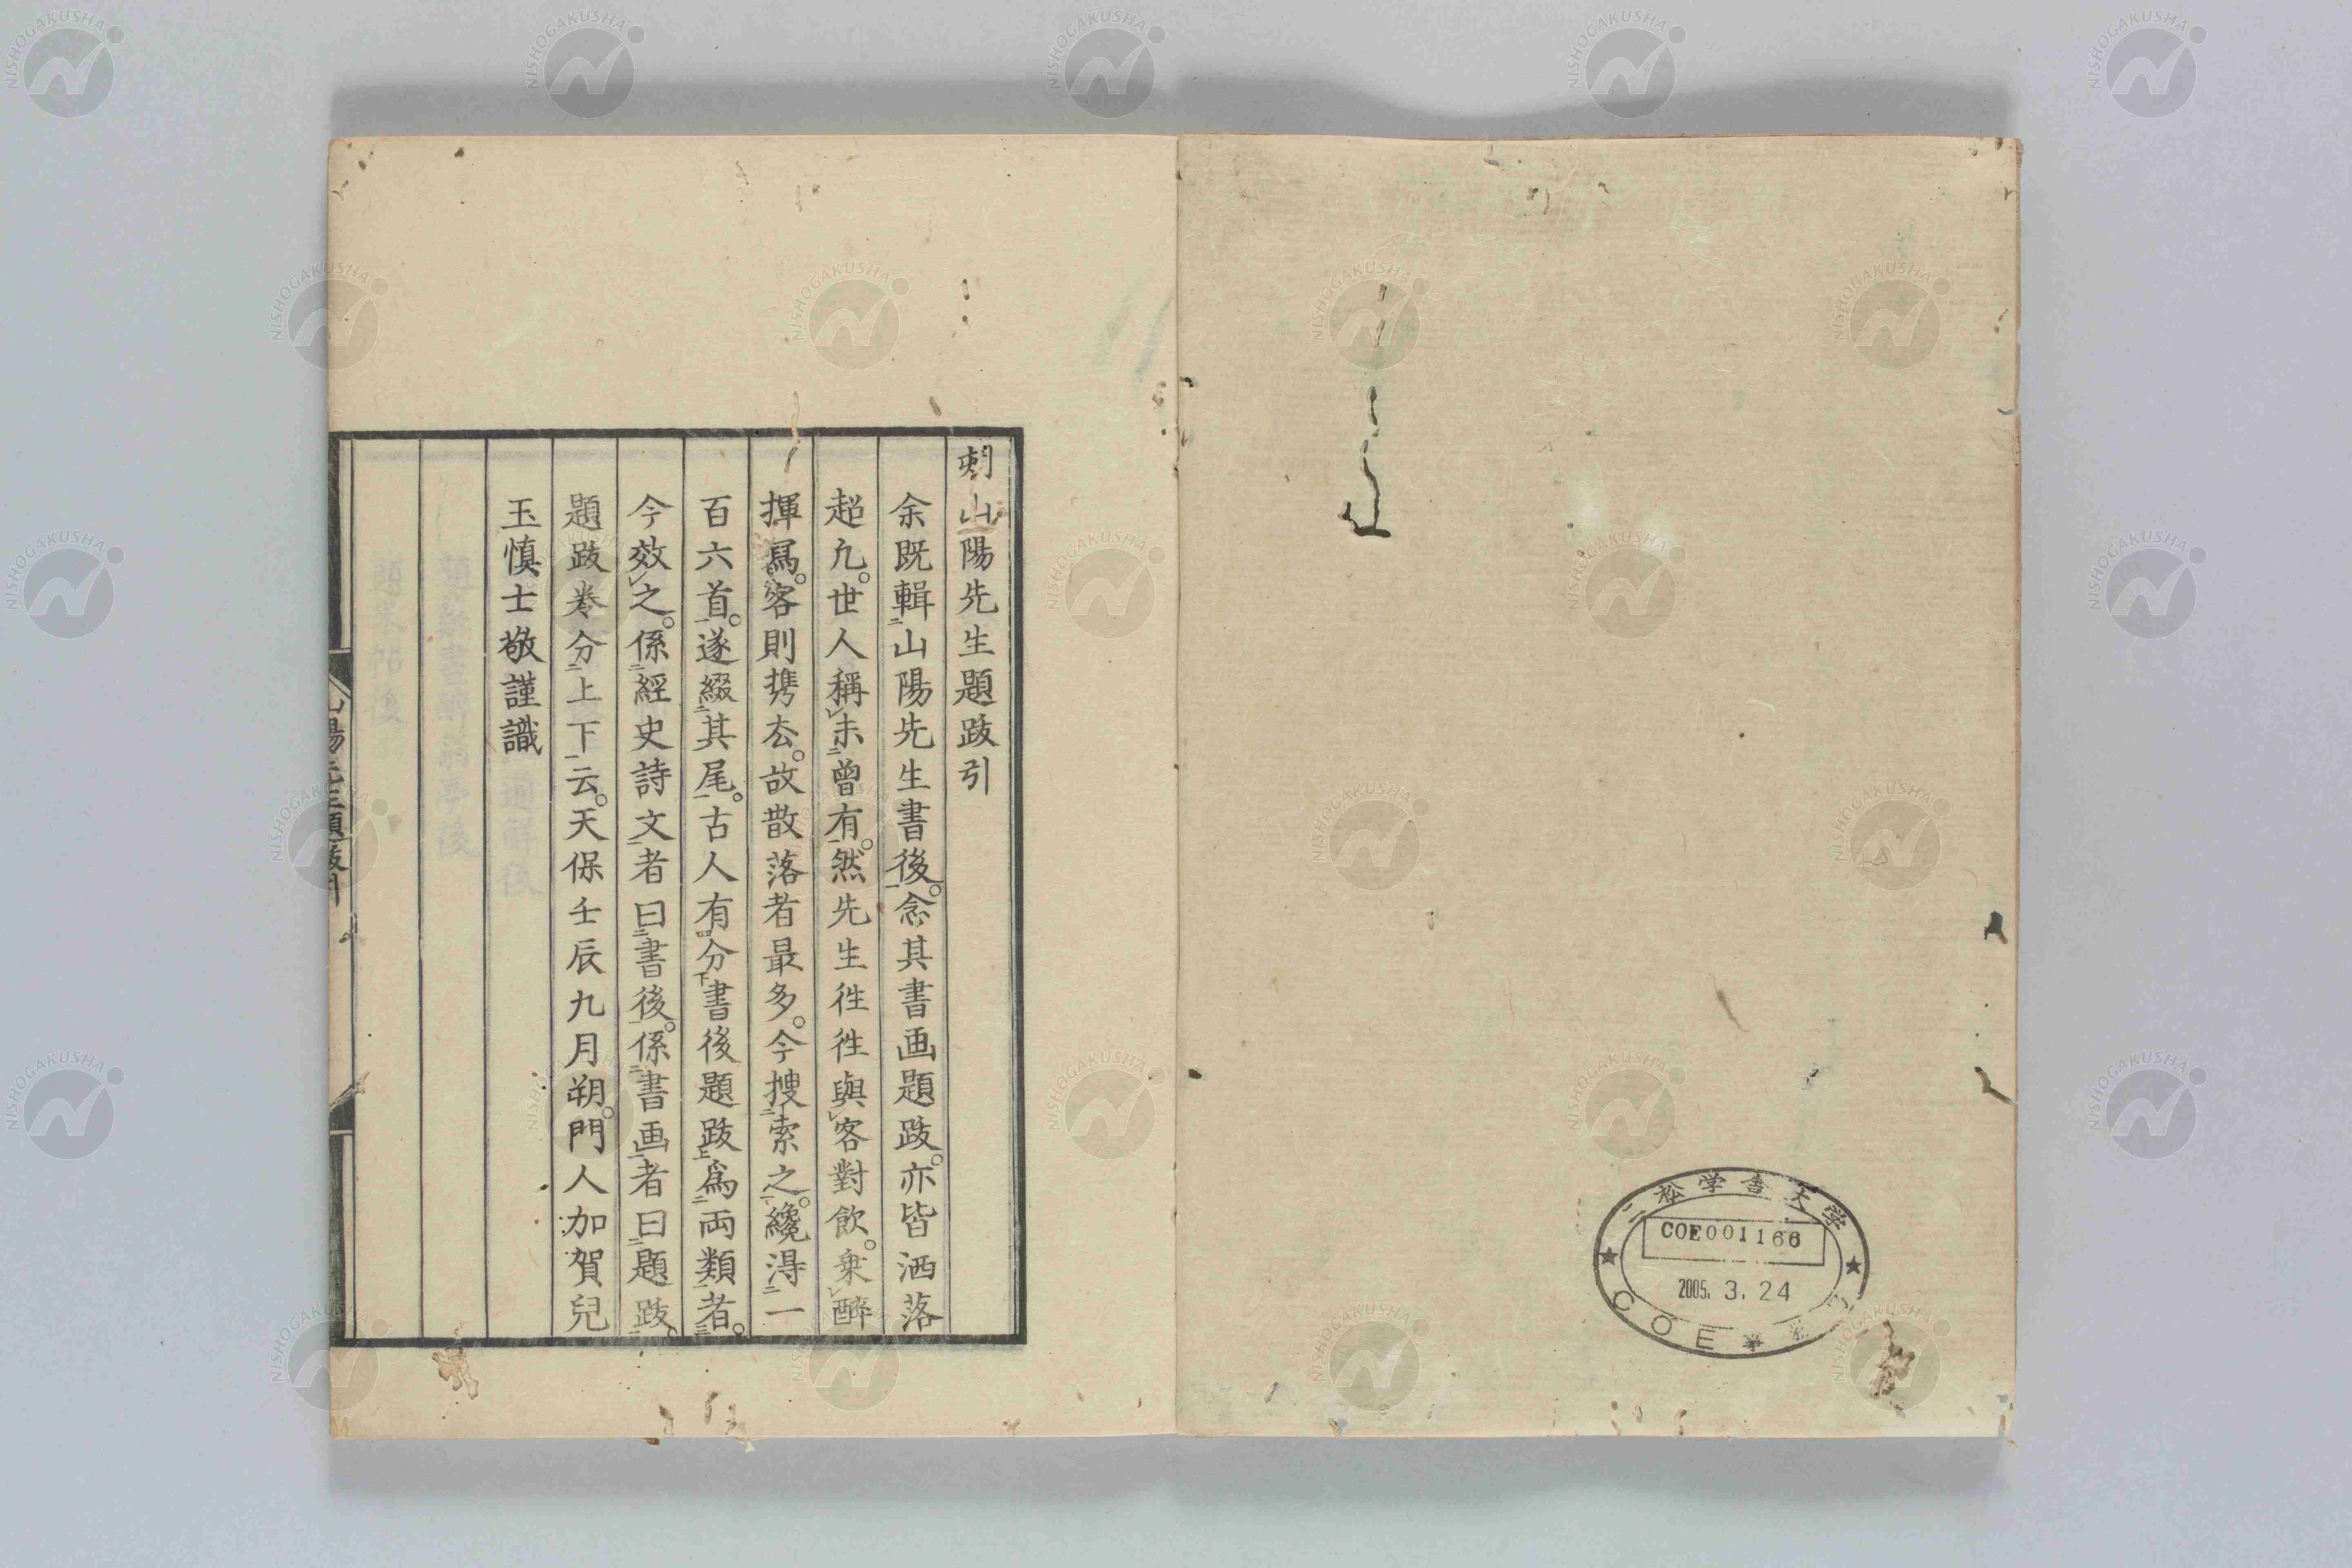 二松学舎大学
COE001166
2005. 3. 24
COE
刺山陽先生題跋引
余既輯山陽先生書後。念其書画題跋。亦皆洒落
超凢。世人稱未曾有。然先生徃徃與客對飲。乗醉
揮寫。客則携去。故散落者最多。今搜索之。纔淂一
百六首。遂綴其尾。古人有分書後題跋為兩類者。
今效之。係經史詩文者曰書後。係書画者曰題跋。
題跋卷分上下云。天保壬辰九月朔。門人加賀兒
玉慎士敬謹識